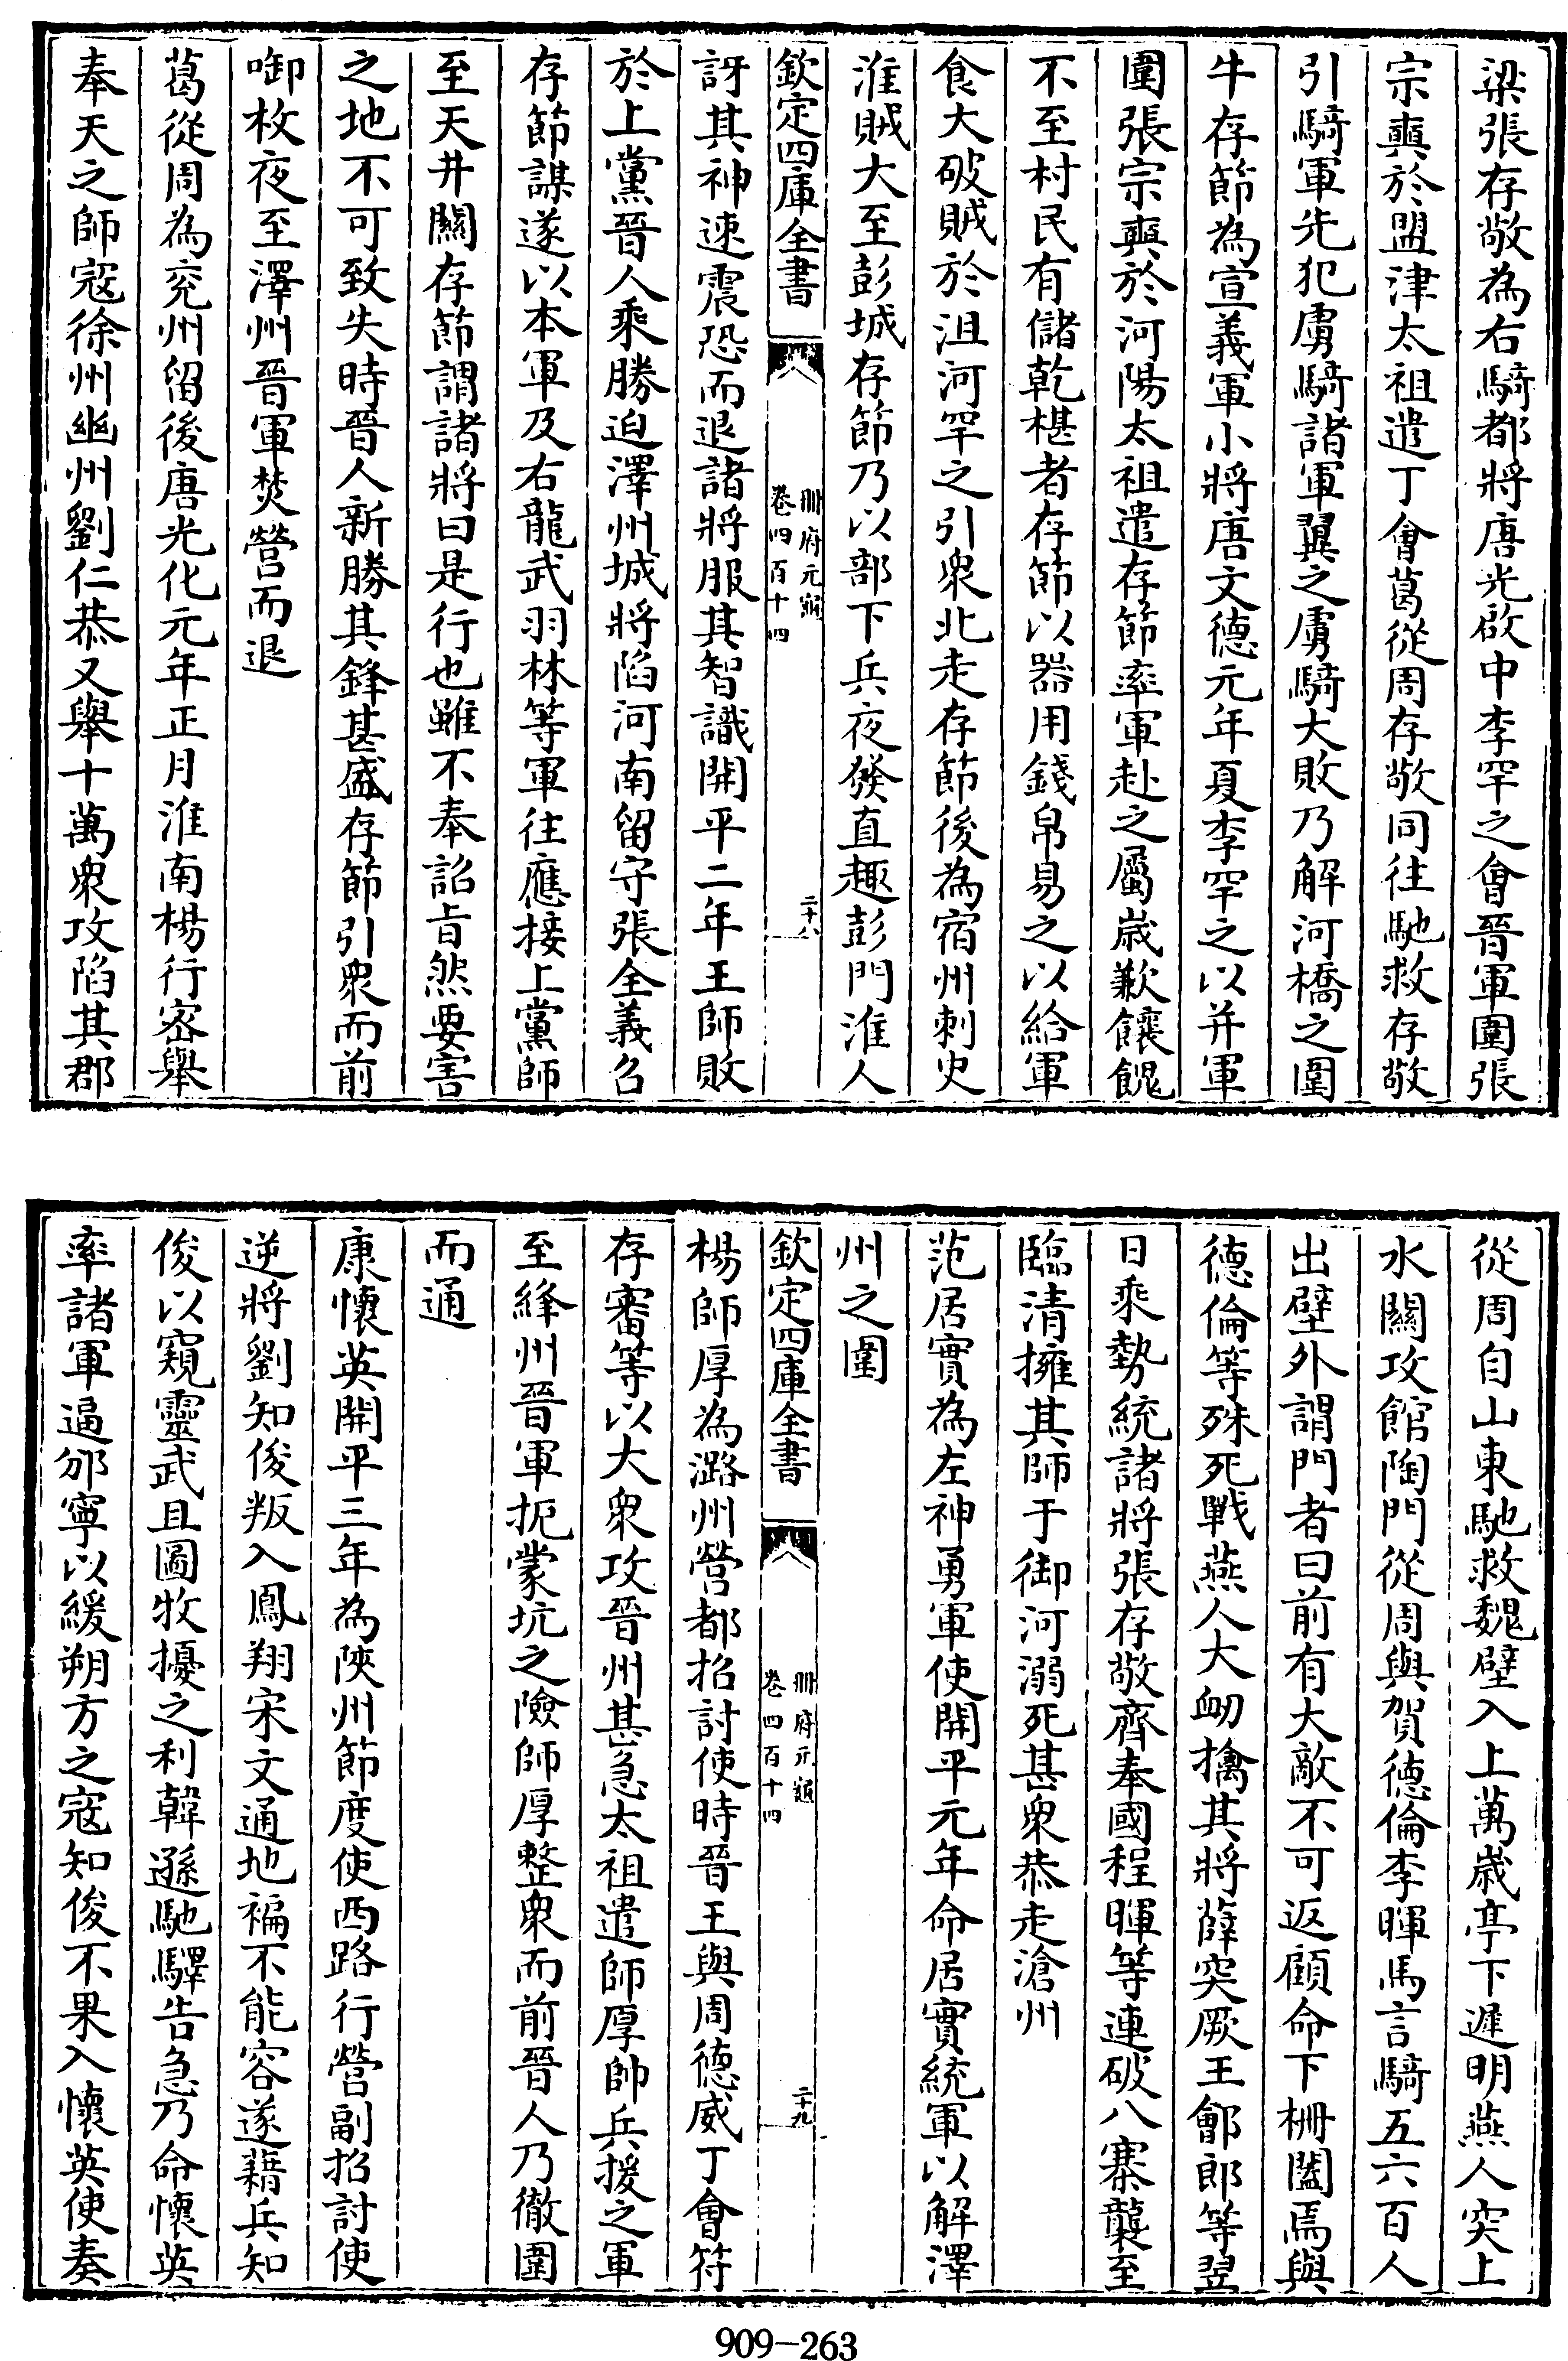 梁張存敬為右騎都將唐光啟中李罕之會晉軍圍張
宗奭於盟津太祖遣丁會葛從周存敬同往馳救存敬
引騎軍先犯虜騎諸軍翼之虜騎大敗乃解河橋之圍
牛存節為宣義軍小將唐文德元年夏李罕之以并軍
圍張宗奭於河陽太祖遣存節率軍赴之屬歲歉饟餽
不至村民有儲乾椹者存節以器用錢帛易之以給軍
食大破賊於沮河罕之引衆北走存節後為宿州刺史
淮賊大至彭城存節乃以部下兵夜發直趣彭門淮人
欽定四庫全書
冊府元龜
卷四百十四
二十八
訝其神速震恐而退諸將服其智識開平二年王師敗
於上黨晉人乘勝迫澤州城將陷河南留守張全義召
存節謀遂以本軍及右龍武羽林等軍往應接上黨師
至天井關存節謂諸將曰是行也雖不奉詔㫖然要害
之地不可致失時晉人新勝其鋒甚盛存節引衆而前
啣枚夜至澤州晉軍焚營而退
葛從周為兖州留後唐光化元年正月淮南楊行密舉
奉天之師寇徐州幽州劉仁恭又舉十萬衆攻陷其郡
從周自山東馳救魏壁入上萬歲亭下遲明燕人突上
水關攻館陶門從周與賀德倫李暉馬言騎五六百人
出壁外謂門者曰前有大敵不可返顧命下柵闔焉與
德倫等殊死戰燕人大衂擒其將薛突厥王鄶郎等翌
日乘勢統諸將張存敬齊奉國程暉等連破八寨襲至
臨清擁其師于御河溺死甚衆恭走滄州
范居實為左神勇軍使開平元年命居實統軍以解澤
州之圍
欽定四庫全書
冊府元龜
卷四百十四
二十九
楊師厚為潞州營都招討使時晉王與周德威丁會符
存審等以大衆攻晉州甚急太祖遣師厚帥兵援之軍
至絳州晉軍扼蒙坑之險師厚整衆而前晉人乃徹圍
而通
康懷英開平三年為陜州節度使西路行營副招討使
逆將劉知俊叛入鳳翔宋文通地褊不能容遂藉兵知
俊以窺靈武且圖牧擾之利韓遜馳驛告急乃命懷英
率諸軍逼邠寧以緩朔方之寇知俊不果入懷英使奏
909-263